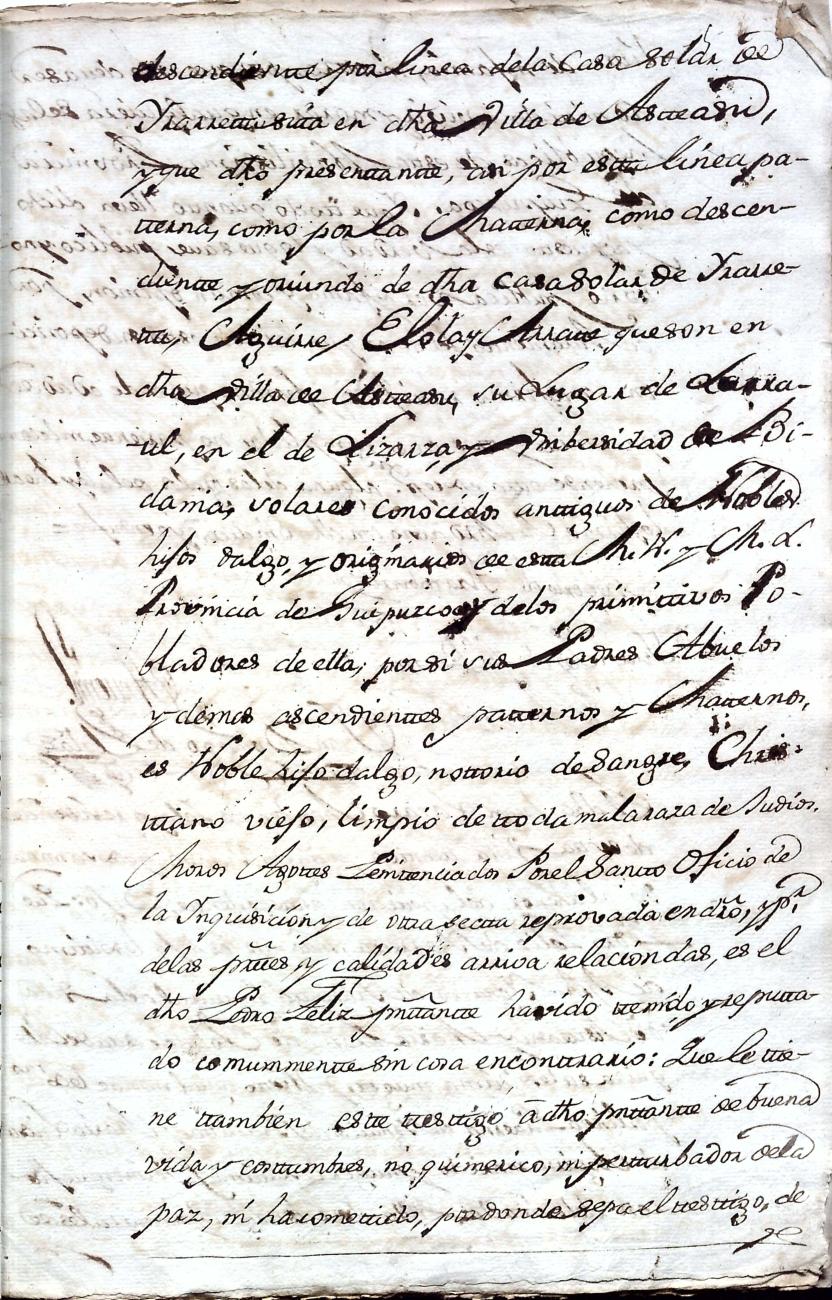 descendiente por linea dela Casa solar de
Yrarreta sita en dha Villa de Asteasu,
y que dho presentante, asi por esta linea pa-
tterna, como por la Matterna, como descen-
diente y oriundo de dha casa solar de Yrarre-
ta, Aguirre, Elola y Arrate que son en
dha Villa de Asteasu, su Lugar de Larra-
ul, en el de Lizarza, y Vnibersidad de Bi-
dania, solares conocidos anttiguos de Nobles
hijos dalgo, y originarios de esta M. N. y M. L.
Provincia de Guipuzcoa y delos primittivos Po-
bladores de ella, por si sus Padres Abuelos
y demas ascendienttes patternos y Matternos,
es Noble hijo dalgo, nottorio de sangre, Chris-
ttiano viejo, limpio de ttoda mala raza de Judios,
Moros Agottes Penitenciados Por el Santto Oficio de
la Inquisicion y de otra secta reprovada en dro, y pr
delas prttes y calidades arriva relaciondas, es el
dho Pedro Feliz prnttantte havido ttenido y reputta-
do comunmentte sin cosa en conttrario: Que le ttie-
ne ttambien este testtigo â dho prnttantte de buena
vida y costtumbres, no quimerico, ni perturbador de la
paz, ni ha comettido, por donde sepa el testtigo, de